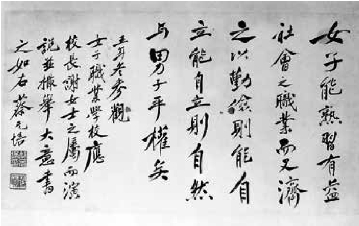 女子能熟習有益
社會之職業而又濟
之以勤儉則能自
立能自立則自然
与男子平權矣
五月参觀
女子職業學校應
校長謝女士之屬而演
説並撮舉大意書
之如右 蔡元培